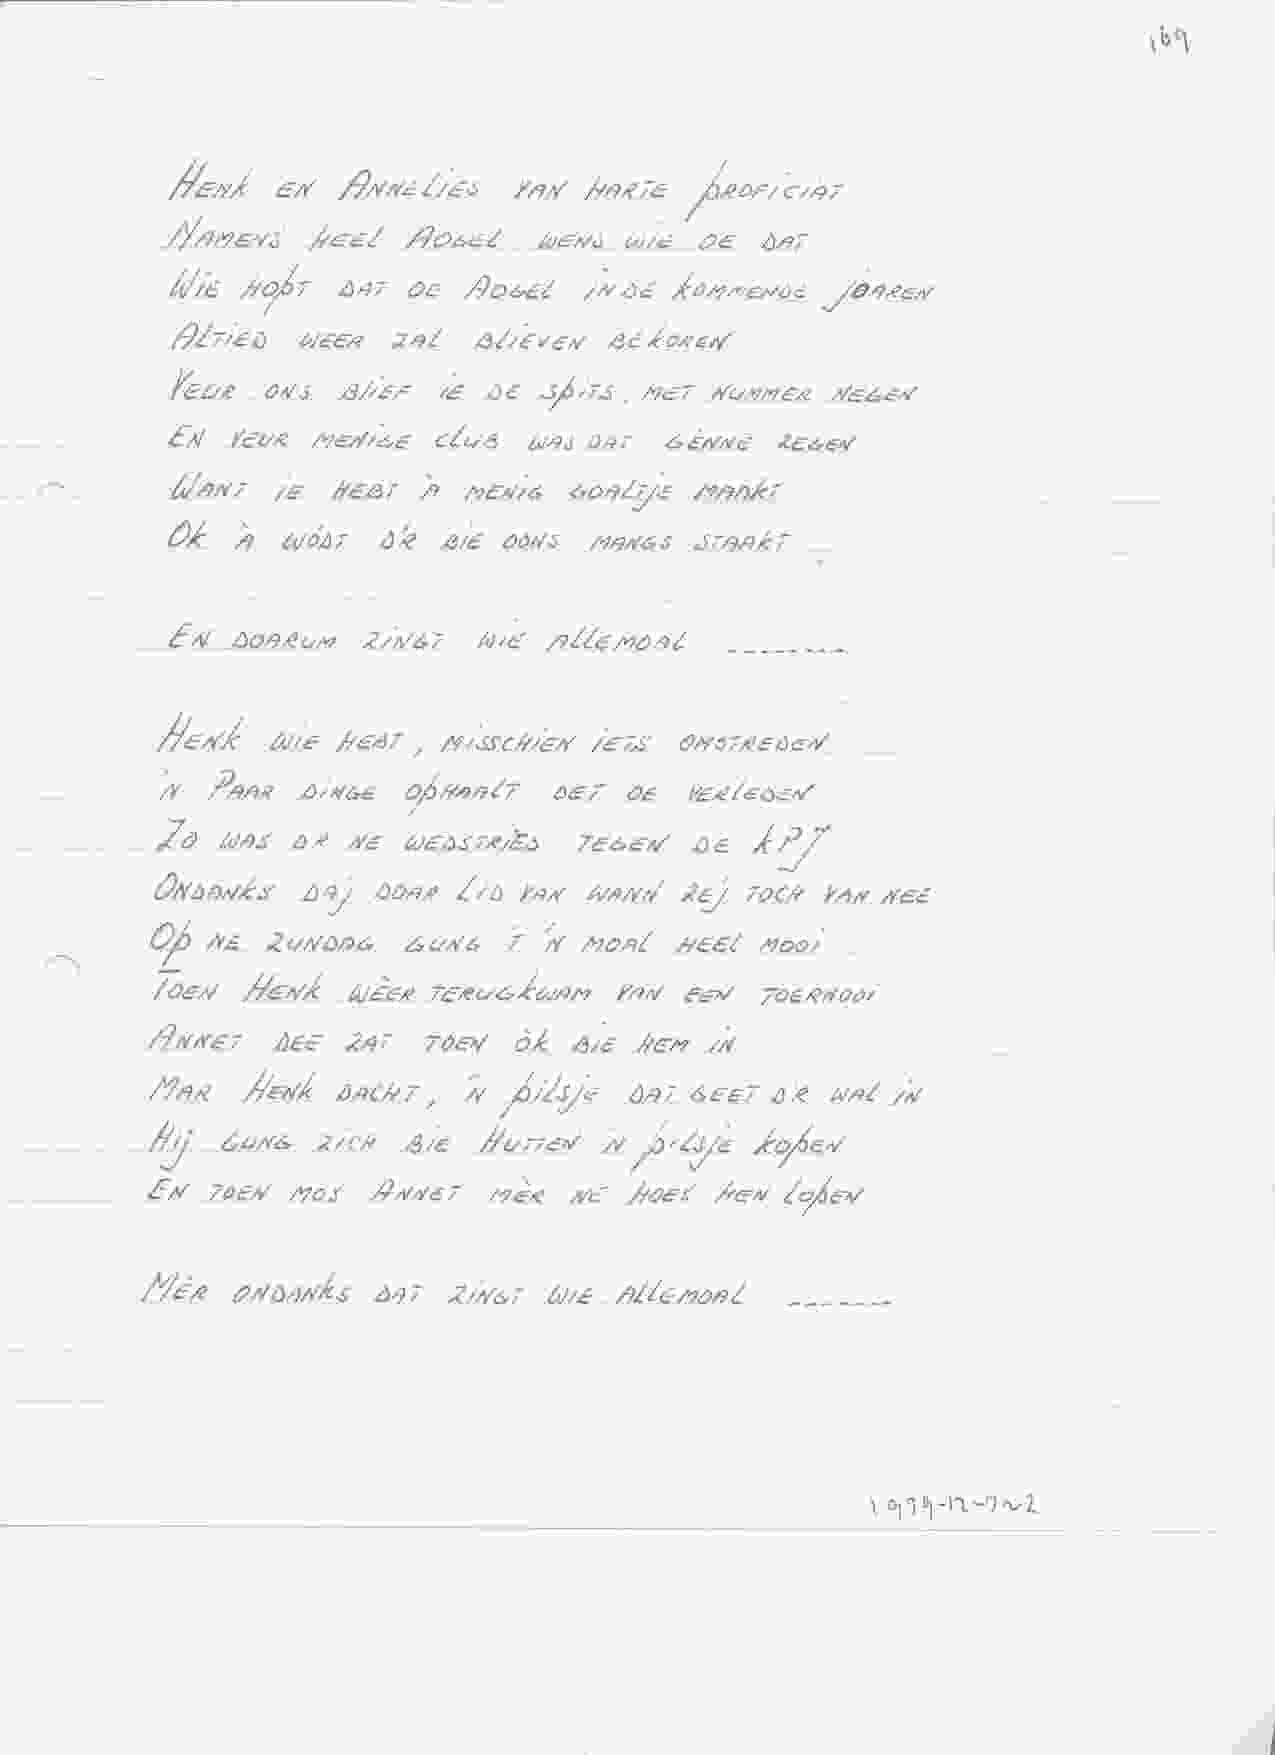 169
Henk en Annelies van harte proficiat
Namens heel Aogel wens wie oe dat
Wie hopt dat oe Aogel in de kommende joaren
Altied weer zal blieven bekoren
Veur ons blief ie de spits met nummer negen
En veur menige club was dat genne zegen
Want ie hebt 'n menig goaltje maakt
Ok 'n wódt d'r bie oons mangs staakt
En doarum zingt wie allemoal --------
Henk wie hebt, misschien iets omstreden
'n Paar dinge ophaalt oet oe verleden
Zo was dr ne wedstried tegen de KPJ
Ondanks da'j doar lid van wann zej toch van nee
Op ne zundag gung 't 'n moal heel mooi
Toen Henk wèer terugkwam van een toernooi
Annet dee zat toen ok bie hem in
Mar Henk dacht, 'n pilsje dat geet d'r wal in
Hij gung zich bie Hutten 'n pilsje kopen
En toen mos Annet mèr ne hoes hen lopen
Mèr ondanks dat zingt wie allemoal -------